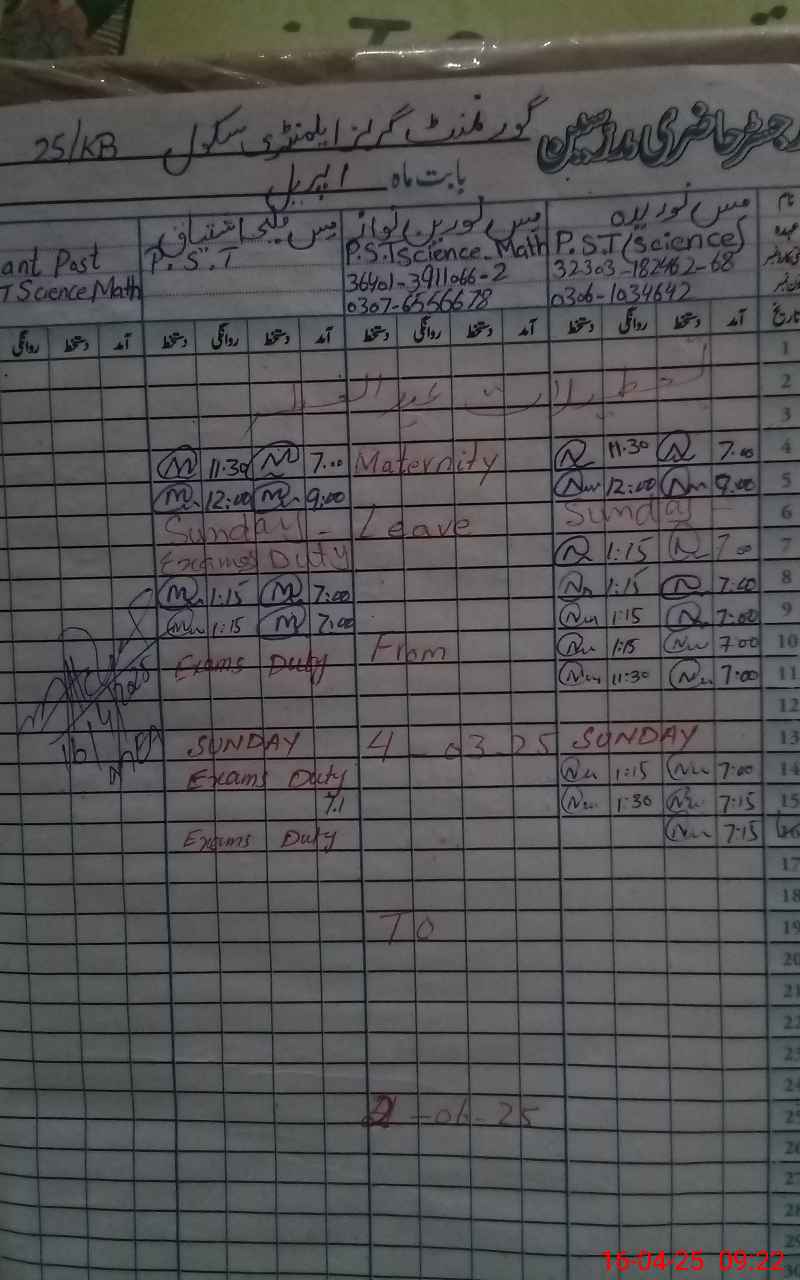 رجسٹر حاضری مدرسین گورنمنٹ گرلز ایلمنٹری سکول 25/KB
بابت ماہ اپریل
نام مس نورین مس نورین نواز مس
عہدہ P.S.T (Science) P.S.T Science-Math P.S.T ant Post
32303-182462-68 36401-3911066-2 T Science Math
0306-1034642 0307-6556678
تاریخ آمد دستخط روانگی دستخط آمد دستخط روانگی دستخط آمد دستخط روانگی دستخط آمد دستخط روانگی
1
2
3
4 7.00 11.30 Maternity 7.00 11.30
5 9.00 12:00 9:00 12:00
6 Sunday Leave Sunday
7 7.00 1:15 Exams Duty
8 7:00 1:15 7:00 1:15
9 7:00 1:15 7:00 1:15
10 7:00 1:15 From
11 7:00 11:30 Exams Duty
12
13 SUNDAY 4-03-25 SUNDAY
14 7:00 1:15 Exams Duty
15 7:15 1:30
16 7:15 Exams Duty
17
18
19 To
20
21
22
23
24
25 2-06-25
26
27
28
29
30
16-04-25 09:22